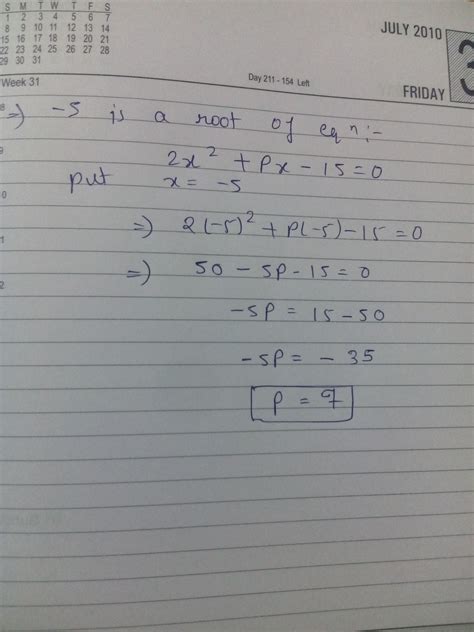 S M T W T F S
1 2 3 4 5 6 7
8 9 10 11 12 13 14
15 16 17 18 19 20 21
22 23 24 25 26 27 28
29 30 31
JULY 2010
Week 31
Day 211 - 154 Left
FRIDAY
3
8
⇒) -5 is a root of eqn:-
9
2x² + Px - 15 = 0
put x = -5
10
⇒) 2(-5)² + P(-5) - 15 = 0
1
⇒) 50 - 5P - 15 = 0
2
-5P = 15 - 50
-5P = - 35
P = 7